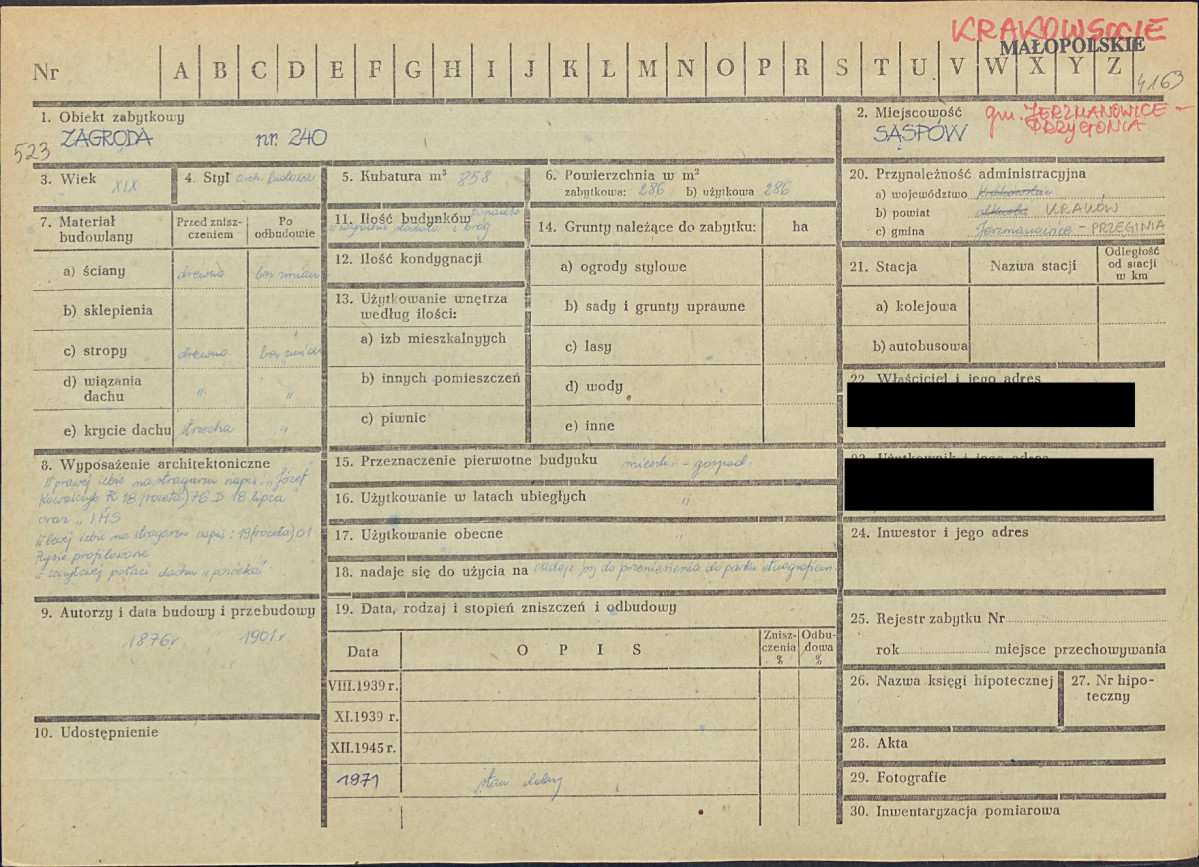 KRAKOWSKIE
MAŁOPOLSKIE
Nr A B C D E F G H I J K L M N O P R S T U V W X Y Z
4163
1. Obiekt zabytkowy
ZAGRODA nr. 240
523
2. Miejscowość
SĄSPÓW
gm. JERZMANOWICE -
PRZEGINIA
3. Wiek XIX
4. Styl arch. ludowa
5. Kubatura m³ 858
6. Powierzchnia w m²
zabytkowa: 286 b) użytkowa 286
7. Materiał
budowlany
Przed znisz-
czeniem
Po
odbudowie
a) ściany drewno bez zmian
b) sklepienia
c) stropy drewno bez zmian
d) wiązania
dachu " "
e) krycie dachu strzecha "
8. Wyposażenie architektoniczne
W prawej izbie na stragarzu napis: "Józef
Kowalczyk R 18 (rozeta) 76 D 18 lipca"
oraz "IHS
W lewej izbie na stragarzu napis: 19 (rozeta) 01
Rysie profilowane
w szczytowej połaci dachu
9. Autorzy i data budowy i przebudowy
1876 r, 1901 r.
10. Udostępnienie
11. Ilość budynków
i bróg
12. Ilość kondygnacji
13. Użytkowanie wnętrza
według ilości:
a) izb mieszkalnyych
b) innych pomieszczeń
c) piwnic
14. Grunty należące do zabytku: ha
a) ogrody stylowe
b) sady i grunty uprawne
c) lasy
d) wody
e) inne
15. Przeznaczenie pierwotne budynku mieszk. - gospod.
16. Użytkowanie w latach ubiegłych "
17. Użytkowanie obecne "
18. nadaje się do użycia na nadaje się do przeniesienia do parku etnograficzn.
19. Data, rodzaj i stopień zniszczeń i odbudowy
Data
OPIS
Znisz-
czenia
%
Odbu-
dowa
%
VIII.1939 r.
XI.1939 r.
XII.1945 r.
1971 stan dobry
20. Przynależność administracyjna
a) województwo Krakowskie
b) powiat olkuski KRAKÓW
c) gmina Jerzmanowice - PRZEGINIA
21. Stacja
Nazwa stacji
Odległość
od stacji
w km
a) kolejowa
b) autobusowa
22. Właściciel i jego adres
23. Użytkownik i jego adres
24. Inwestor i jego adres
25. Rejestr zabytku Nr
rok miejsce przechowywania
26. Nazwa księgi hipotecznej
27. Nr hipo-
teczny
28. Akta
29. Fotografie
30. Inwentaryzacja pomiarowa